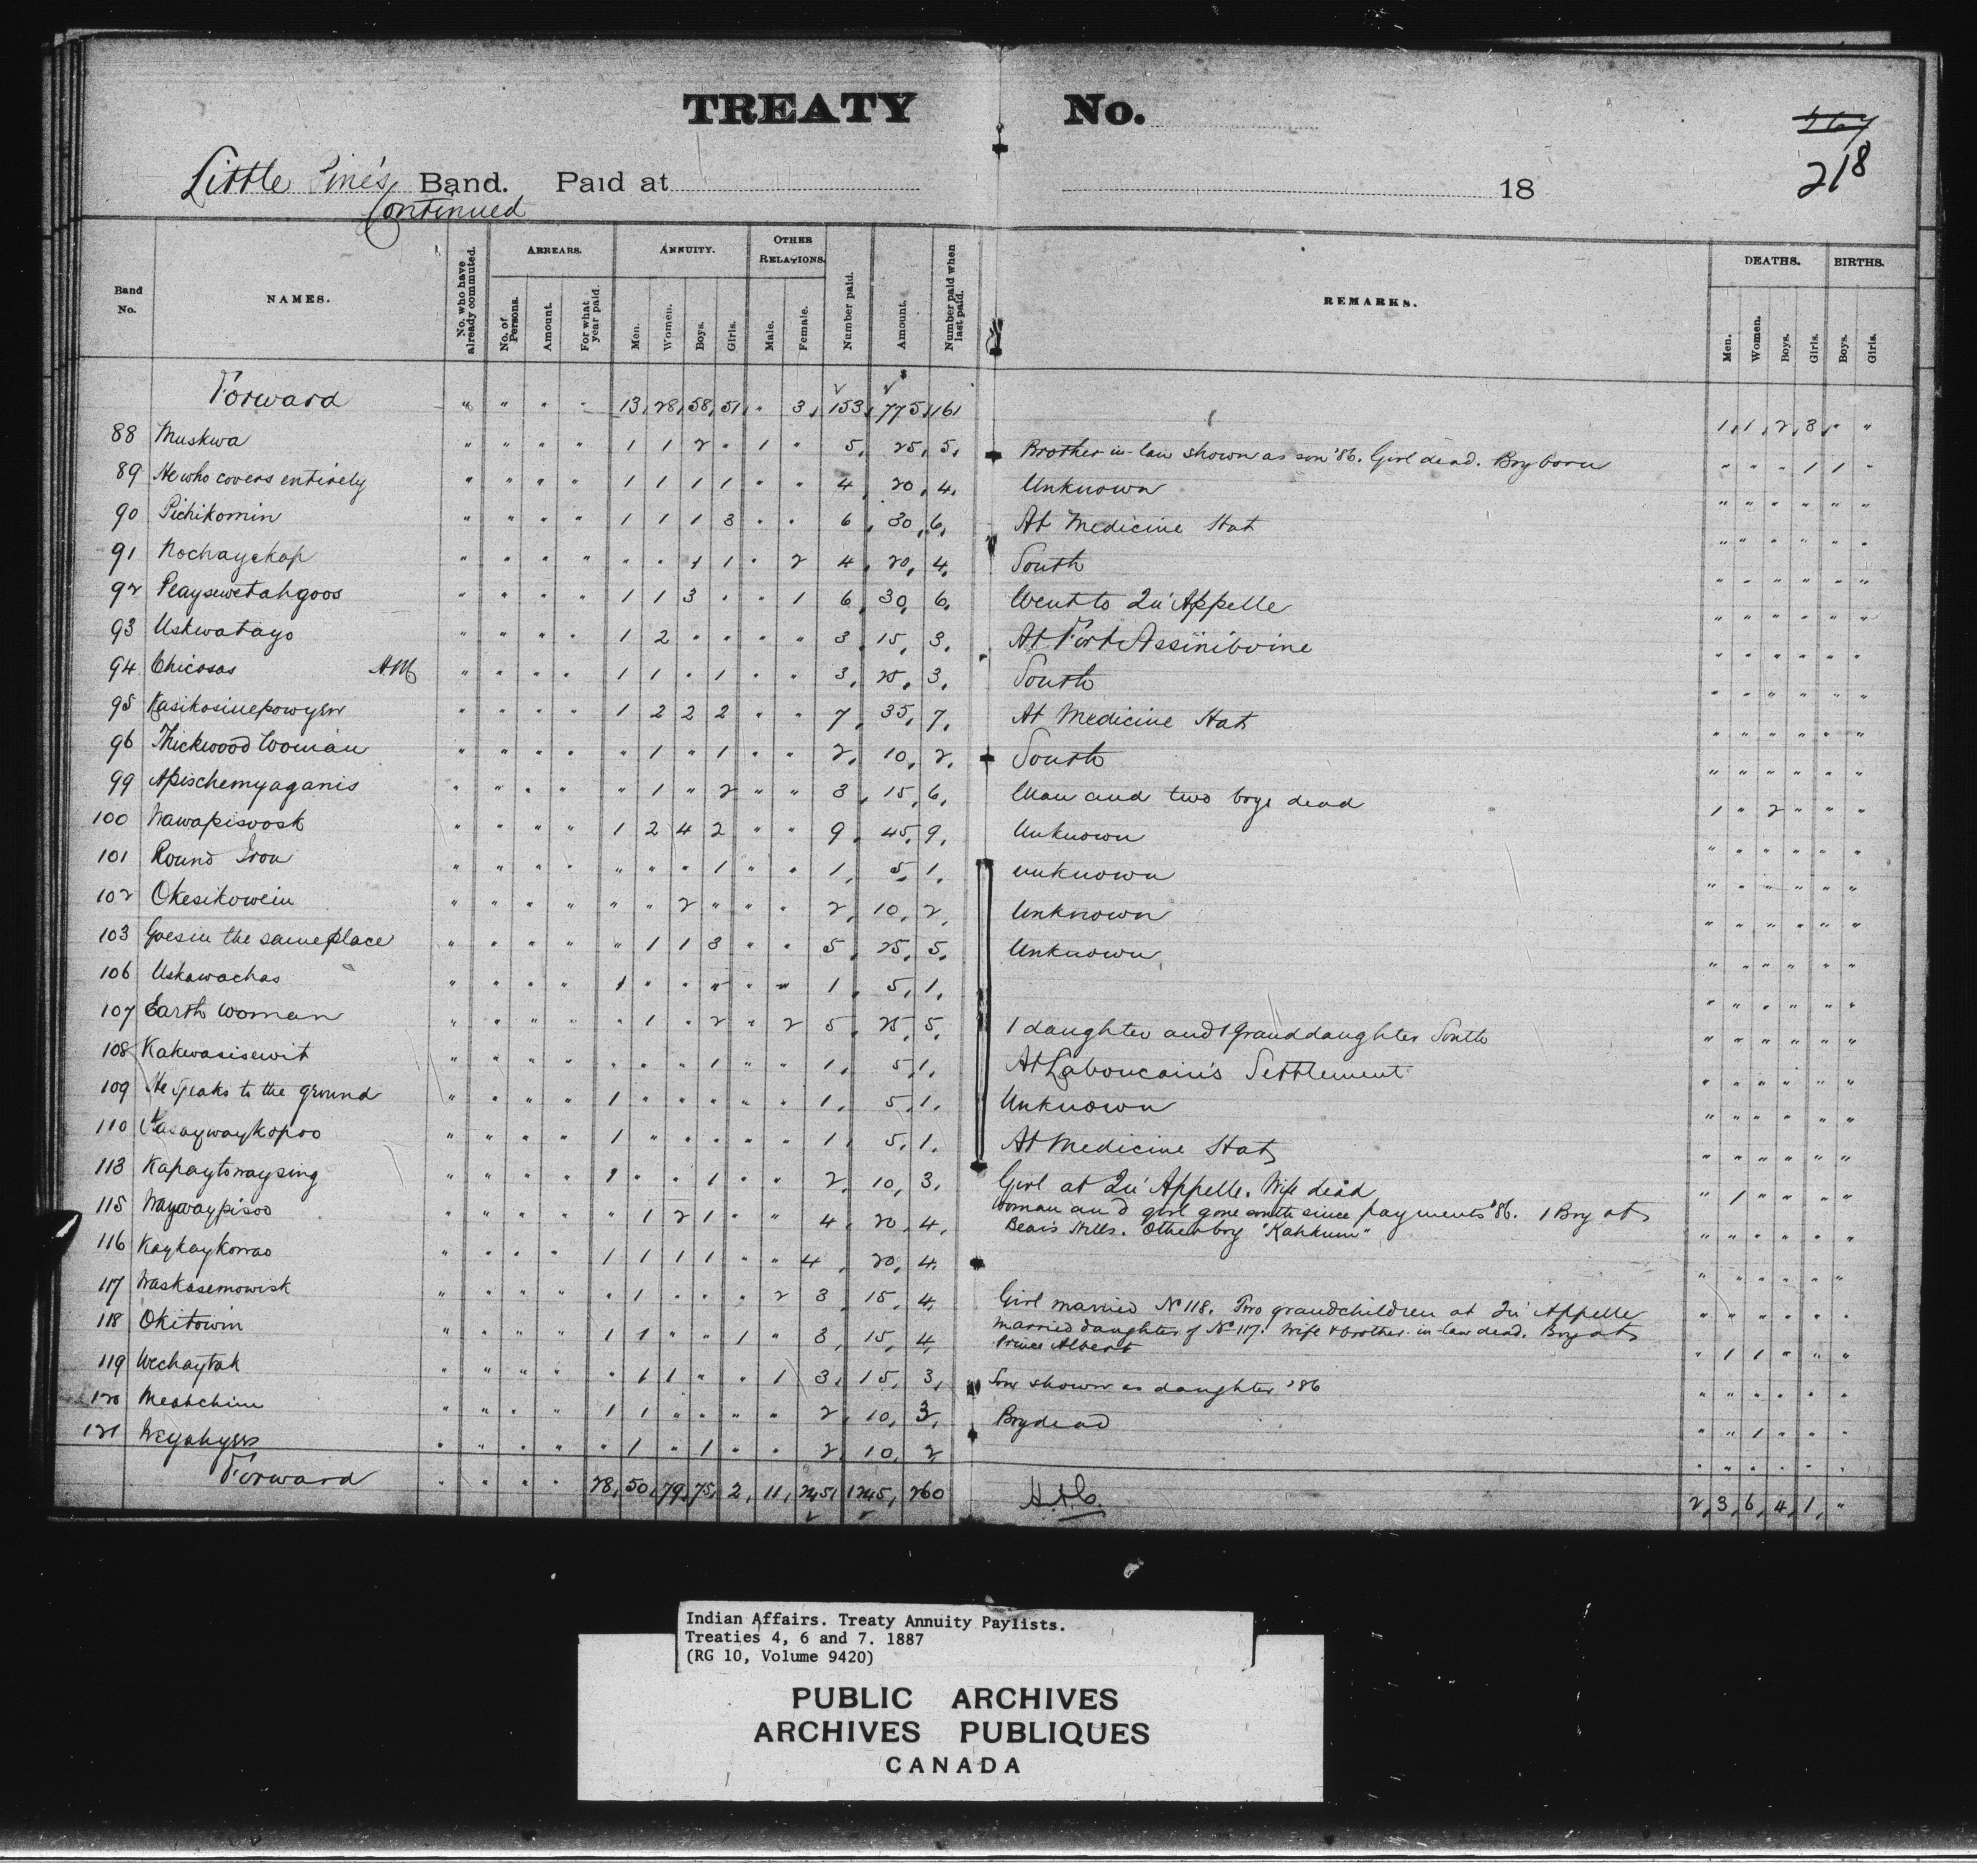 TREATY No.
218
Little Pine's Band. Paid at 18
Continued
Band No. NAMES. No. who have already commuted. ARREARS. No. of Persons. Amount. For what year paid. ANNUITY. Men. Women. Boys. Girls. OTHER RELATIONS. Male. Female. Number paid. Amount. Number paid when last paid. REMARKS. DEATHS. Men. Women. Boys. Girls. BIRTHS. Boys. Girls.
Forward " " " " 13, 28, 58, 51, " 3, 153, $775, 161 1, 1, 2, 3, " "
88 Muskwa " " " " 1 1 2 " 1 " 5, 25, 5, Brother-in-law shown as son '86. Girl dead. Boy born " " " 1 1 "
89 He who covers entirely " " " " 1 1 1 1 " " 4, 20, 4, Unknown " " " " " "
90 Pichikomin " " " " 1 1 1 3 " " 6, 30, 6, At Medicine Hat " " " " " "
91 Nochayekap " " " " " " 1 1 " 2 4, 20, 4, South " " " " " "
92 Peaysewetahgoos " " " " 1 1 3 " " 1 6, 30, 6, Went to Qu'Appelle " " " " " "
93 Uskwatayo " " " " 1 2 " " " " 3, 15, 3, At Fort Assiniboine " " " " " "
94 Chicosas " " " " 1 1 " 1 " " 3, 3, South " " " " " "
95 Kasikosinepowyew " " " " 1 2 2 2 " " 7, 35, 7, At Medicine Hat " " " " " "
96 Thickwood Woman " " " " " 1 " 1 " " 2, 10, 2, South " " " " " "
99 Apischemyaganis " " " " " 1 " 2 " " 3, 15, 6, Man and two boys dead 1 " 2 " " "
100 Nawapisoosk " " " " 1 2 4 2 " " 9, 45, 9, Unknown " " " " " "
101 Round Iron " " " " " " " 1 " " 1, 5, 1, unknown " " " " " "
102 Okesikowein " " " " " " 2 " " " 2, 10, 2, Unknown " " " " " "
103 Goes in the same place " " " " " 1 1 3 " " 5, 25, 5, Unknown " " " " " "
106 Uskawachas " " " " 1 " " " " " 1, 5, 1, " " " " " "
107 Earth Woman " " " " " 1 " 2 " 2 5, 25, 5, 1 daughter and 1 Granddaughter South " " " " " "
108 Kakwasisewit " " " " " " " 1 " " 1, 5, 1, At Laboucain's Settlement " " " " " "
109 He speaks to the ground " " " " 1 " " " " " 1, 5, 1, Unknown " " " " " "
110 " " " " 1 " " " " " 1, 5, 1, At Medicine Hat " " " " " "
113 Kapaytowaysing " " " " 1 " " 1 " " 2, 10, 3, Girl at Qu'Appelle. Wife dead " 1 " " " "
115 Waywaypisoo " " " " " 1 2 1 " " 4, 20, 4, Woman and girl gone south since payments '86. 1 Boy at
Bears Hills. Other boy "Kahkum" " " " " " "
116 Kaykaykorrao " " " " 1 1 1 1 " " 4, 20, 4, " " " " " "
117 Waskasemowisk " " " " " 1 " " " 2 3 15, 4, Girl married No 118. Two grandchildren at Qu'Appelle " " " " " "
118 Okitowin " " " " 1 1 " " 1 " 3, 15, 4, Married daughter of No 117. Wife & brother-in-law dead. Boy at
Prince Albert " 1 1 " " "
119 Wechaytah " " " " " 1 1 " " 1 3, 15, 3, Son shown as daughter '86 " " " " " "
120 Meatchim " " " " 1 1 " " " " 2, 10, 3, Boy dead " " 1 " " "
121 Weyahyew " " " " " 1 " 1 " " 2, 10, 2 " " " " " "
Forward " " " " 28, 50, 79, 75, 2, 11, 245, 1245, 260 2, 3, 6, 4, 1, "
Indian Affairs. Treaty Annuity Paylists.
Treaties 4, 6 and 7. 1887
(RG 10, Volume 9420)
PUBLIC ARCHIVES
ARCHIVES PUBLIQUES
CANADA